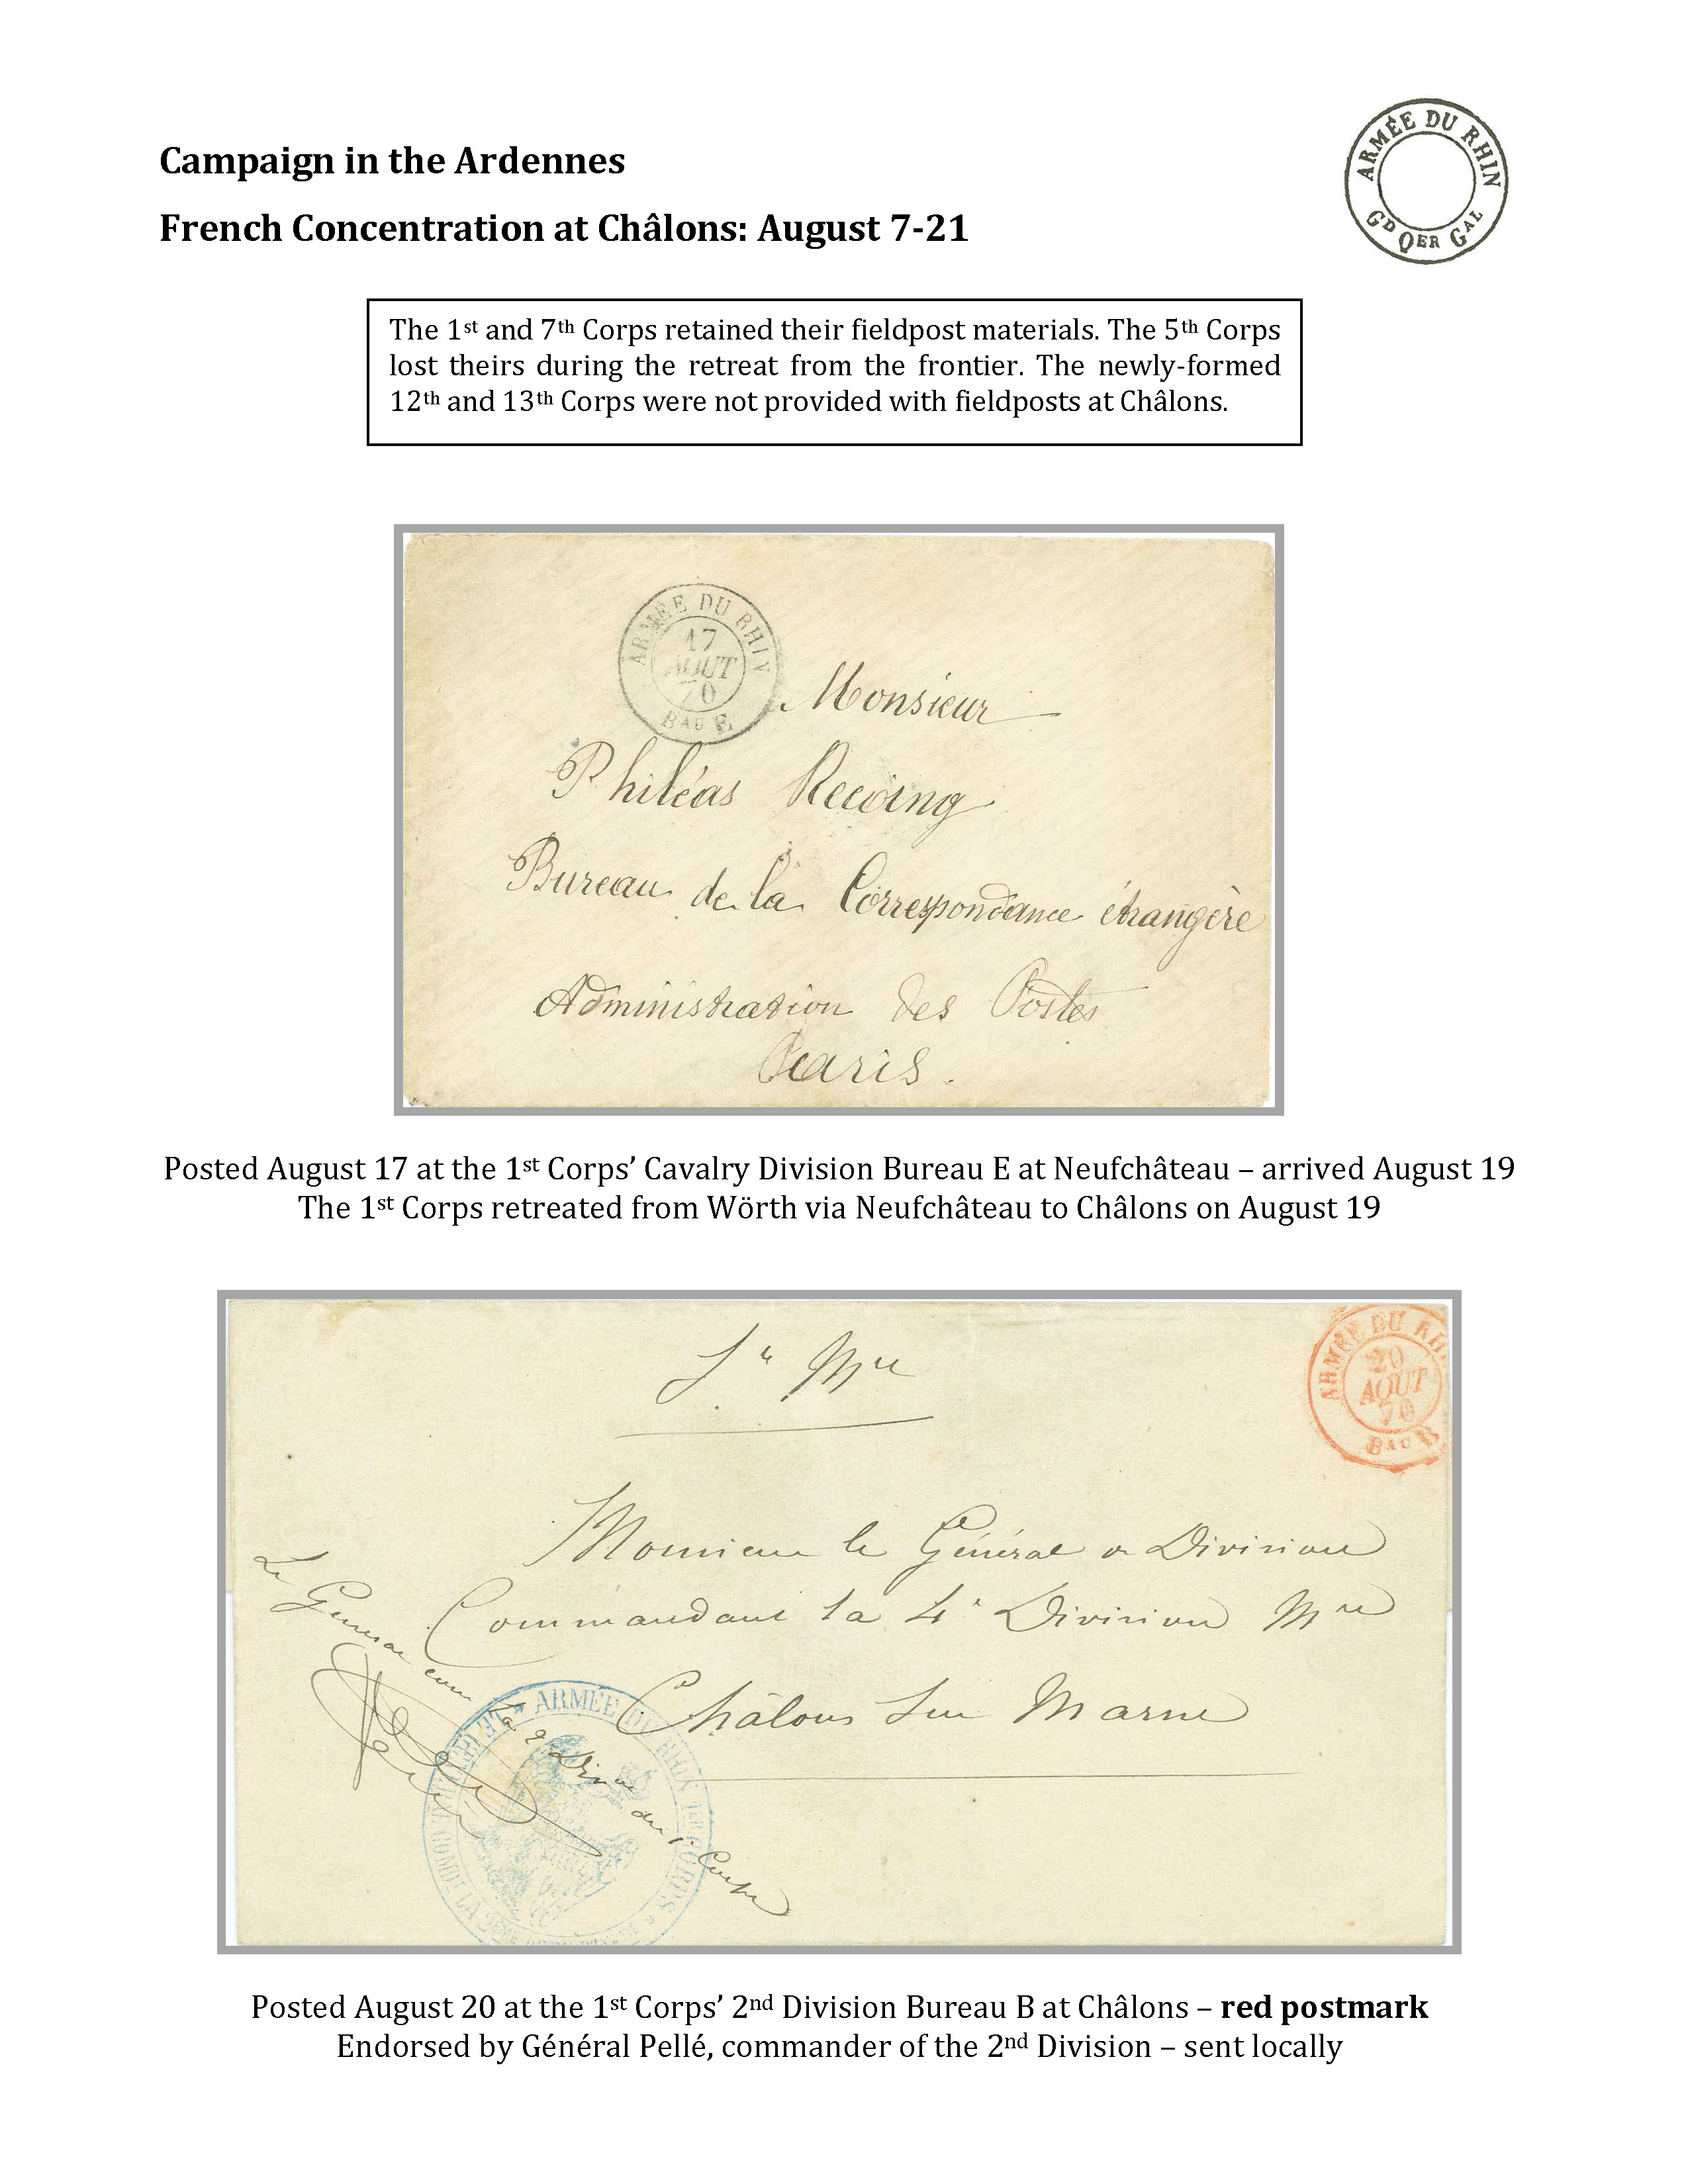 Campaign in the Ardennes
French Concentration at Châlons: August 7-21
ARMÉE DU RHIN
Gᴰ QER GAL
The 1st and 7th Corps retained their fieldpost materials. The 5th Corps
lost theirs during the retreat from the frontier. The newly-formed
12th and 13th Corps were not provided with fieldposts at Châlons.
ARMÉE DU RHIN
17
AOUT
70
BAU E
Monsieur
Philéas
Bureau de la Correspondance étrangère
Administration des Postes
Paris.
Posted August 17 at the 1st Corps’ Cavalry Division Bureau E at Neufchâteau – arrived August 19
The 1st Corps retreated from Wörth via Neufchâteau to Châlons on August 19
ARMÉE DU
20
AOUT
70
BAU B
Sce Mre
Monsieur le Général de Division
Commandant la 4e Division Mre
Châlons sur Marne
Le Général
la 2e Divon du 1er Corps
ARMÉE DU RHIN 1ER CORPS
Posted August 20 at the 1st Corps’ 2nd Division Bureau B at Châlons – red postmark
Endorsed by Général Pellé, commander of the 2nd Division – sent locally